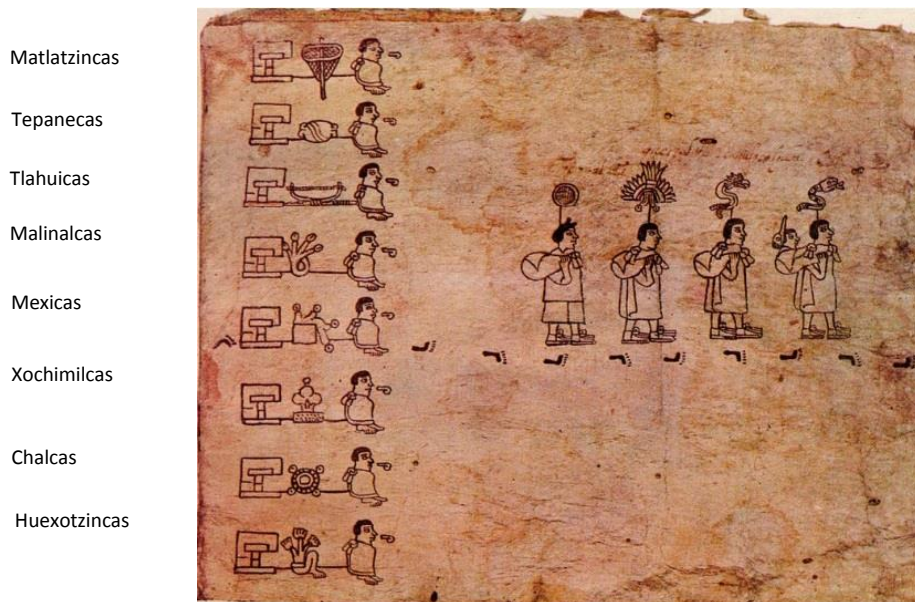 Matlatzincas
Tepanecas
Tlahuicas
Malinalcas
Mexicas
Xochimilcas
Chalcas
Huexotzincas